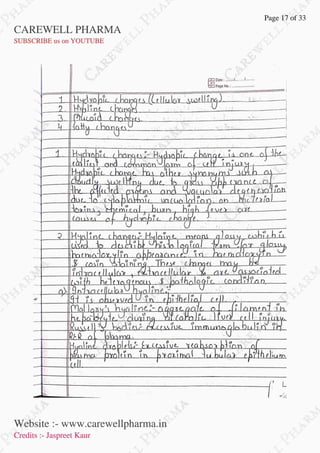 Page 17 of 33
CAREWELL PHARMA
SUBSCRIBE us on YOUTUBE
Date
Page No
1 Hydropic changes (Cellular swelling)
2 Hyline changes
3 Mucoid changes
4 fatty changes
1 Hydropic changes:- Hydropic change is one of the
earliest and common form of cell injury
Hydropic change has other synonyms such as
cloudy swelling due to gross appearance of
the affected organs and vacuolar degeneration
due to cytoplasmic vacuolation
toxins, chemical, burn, high fever are
causes of hydropic change
2. Hyline change:- Hylaine means glossy which is
used to describe histological term for glossy
haematoxylin appearance in haematoxylin
& eosin staining These change may be
intracellular, extracellular & are associated
with heterogenous & pathologic condition
a) Intracellular hyaline:-
It is observed in epithelial cell.
Mallory's hyaline:- aggregate of filament in
hepatocyte during alcoholic liver cell injury
Russell's bodies: excessive immunoglobulin in
RER of plasma
Hyaline droplets: Excessive reabsorption of
plasma protein in proximal tubular epithelium
cell.
Website :- www.carewellpharma.in
Credits :- Jaspreet Kaur